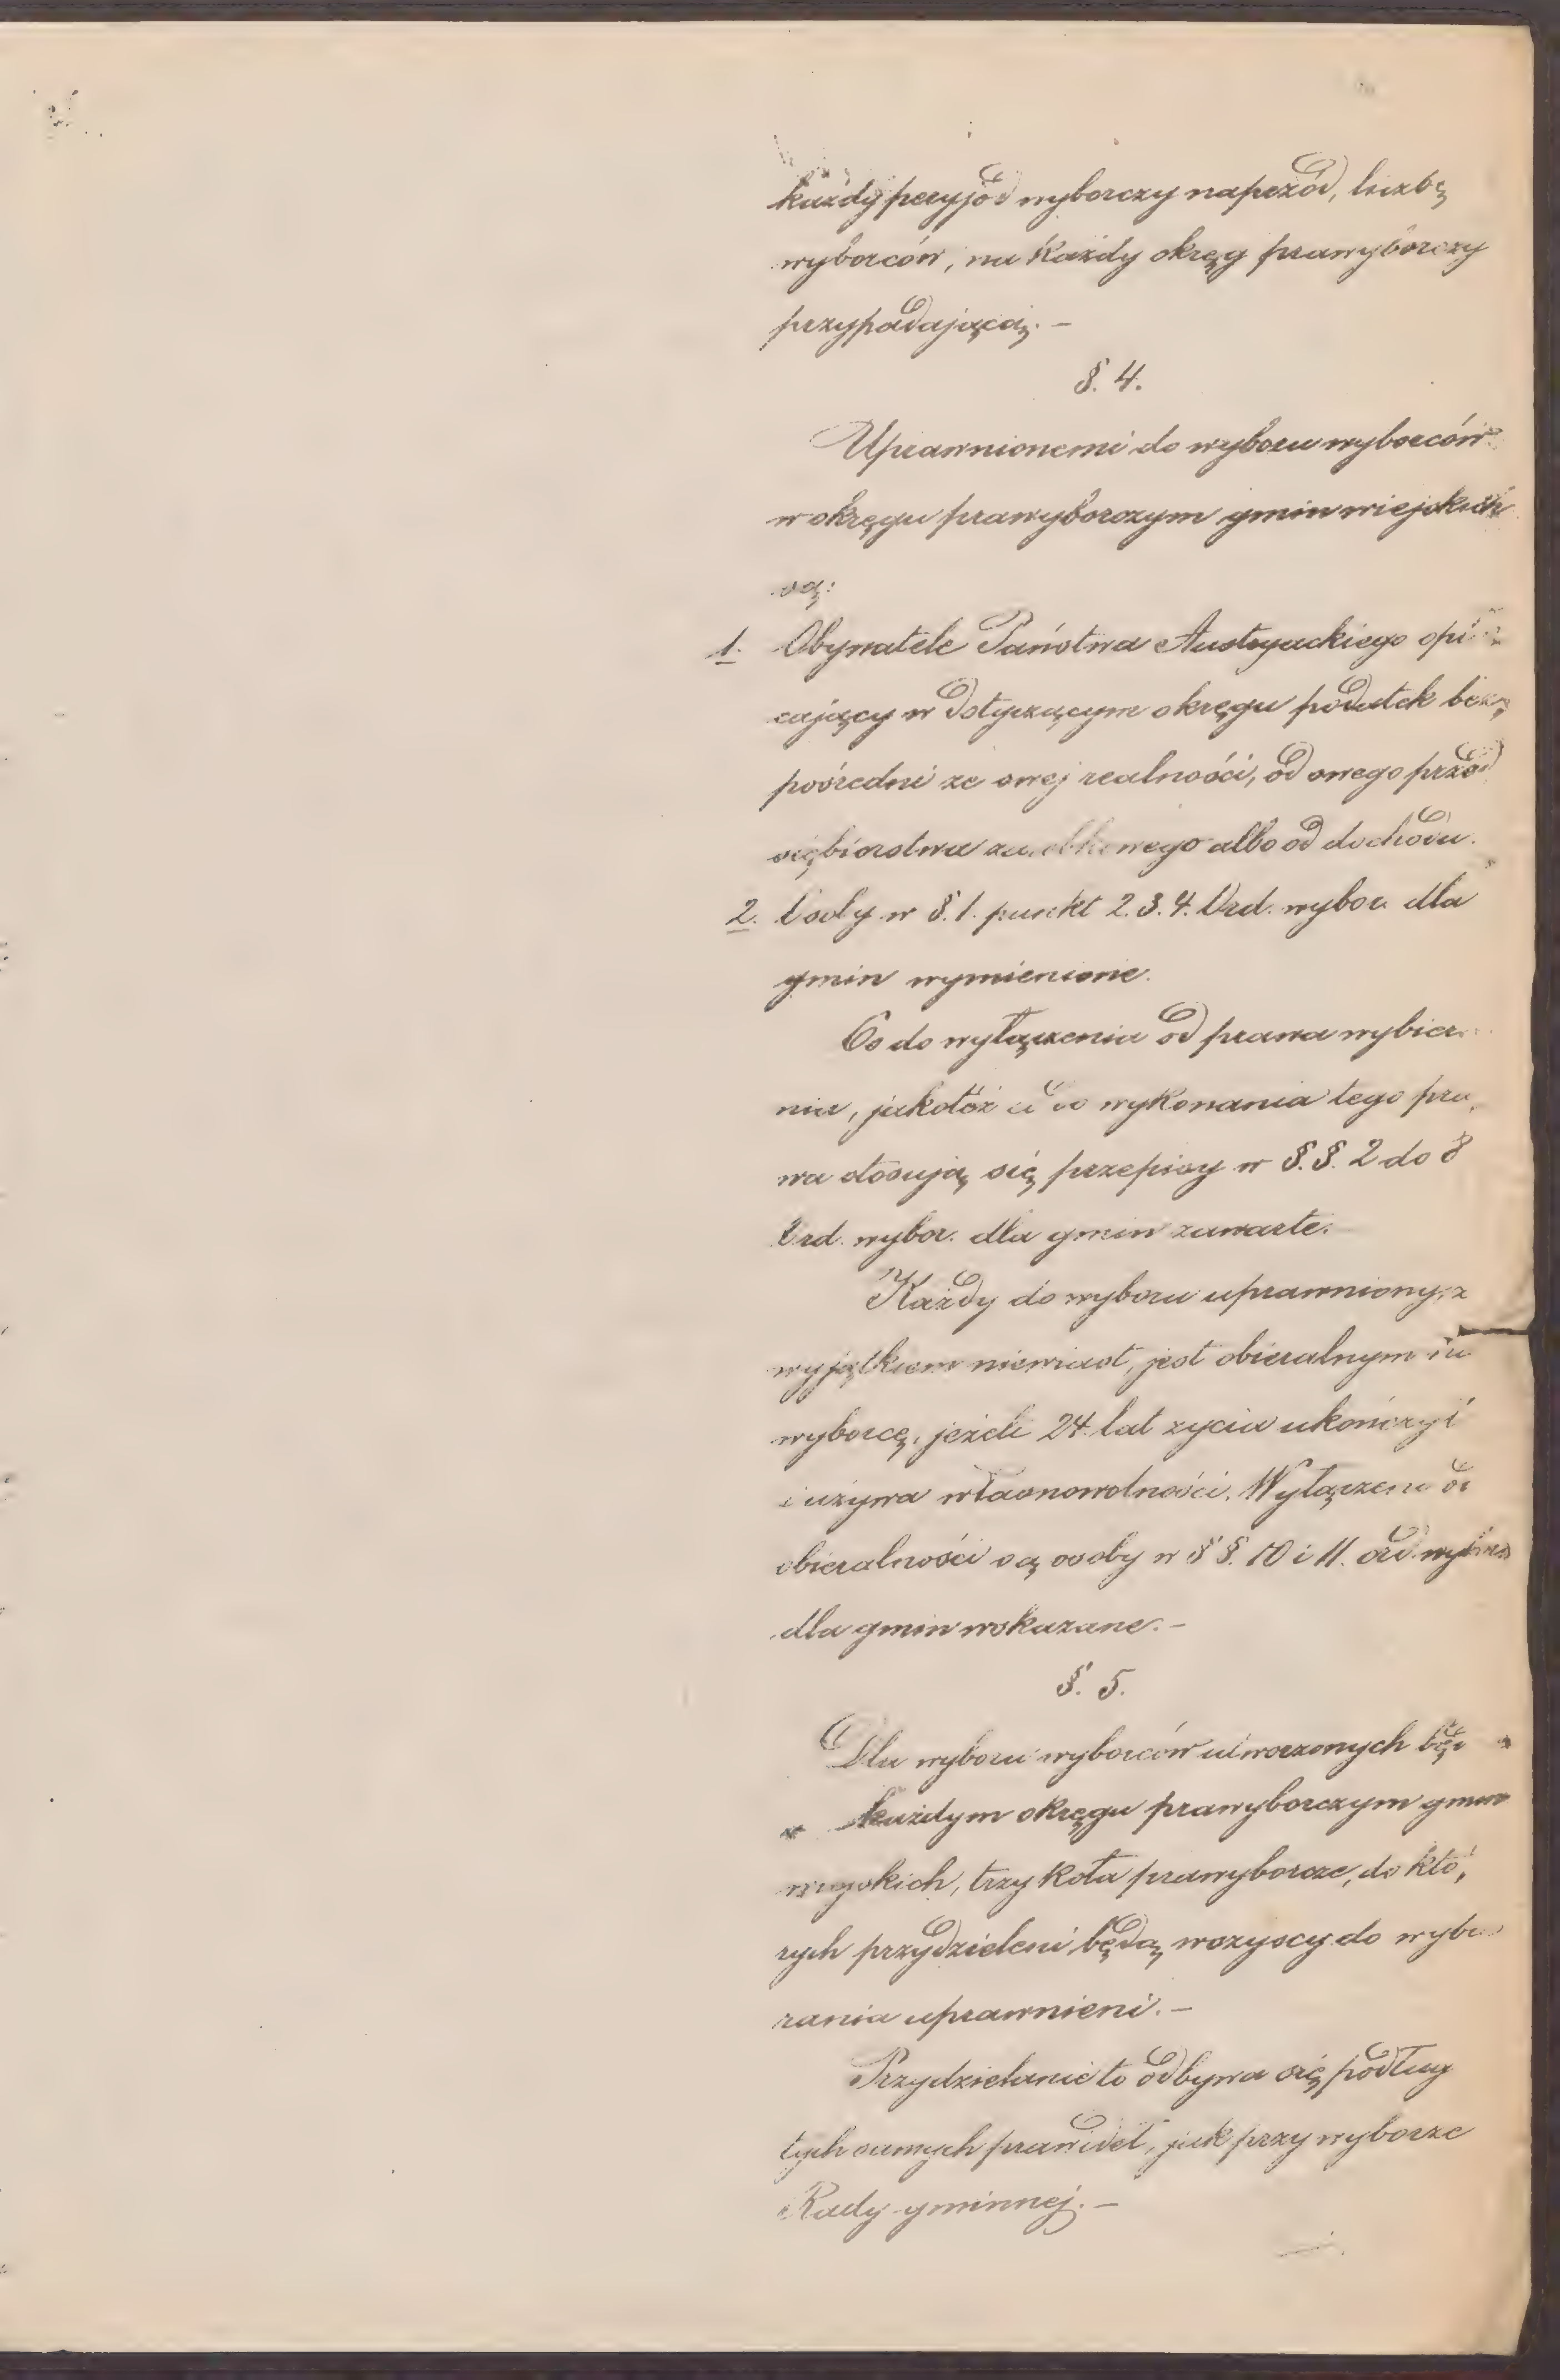 każdy peryjod wyborczy naprzód, liczbę
wyborców, na każdy okręg prawyborczy
przypadającą. –
§. 4.
Uprawnionemi do wyboru wyborców
w okręgu prawyborczym gmin wiejskich
są:
1. Obywatele Państwa Austryackiego opła
cający w dotyczącym okręgu podatek bez,
pośredni ze swej realności, od swego przed
siębiorstwa zarobkowego albo od dochodu.
2. Osoby w §. 1. punkt 2. 3. 4. Ord. wybor. dla
gmin wymienione.
Co do wyłączenia od prawa wybiera
nia, jakotéż co do wykonania tego pra,
wa stosują się przepisy w §. §. 2 do 8
Ord. wybor. dla gmin zawarte.
Każdy do wyboru uprawniony, z
wyjątkiem niewiast, jest obieralnym na
wyborcę, jeżeli 24 lat życia ukończył
i używa własnowolności. Wyłączeni od
obieralności są osoby w § §. 10 i 11. ord. wybor
dla gmin wskazane. –
§. 5.
Dla wyboru wyborców utworzonych będzie
w każdym okręgu prawyborczym gmin
wiejskich, trzy koła prawyborcze, do któ,
rych przydzieleni będą wszyscy do wybie
rania uprawnieni. –
Przydzielanie to odbywa się podług
tych samych prawideł, jak przy wyborze
Rady gminnej. –